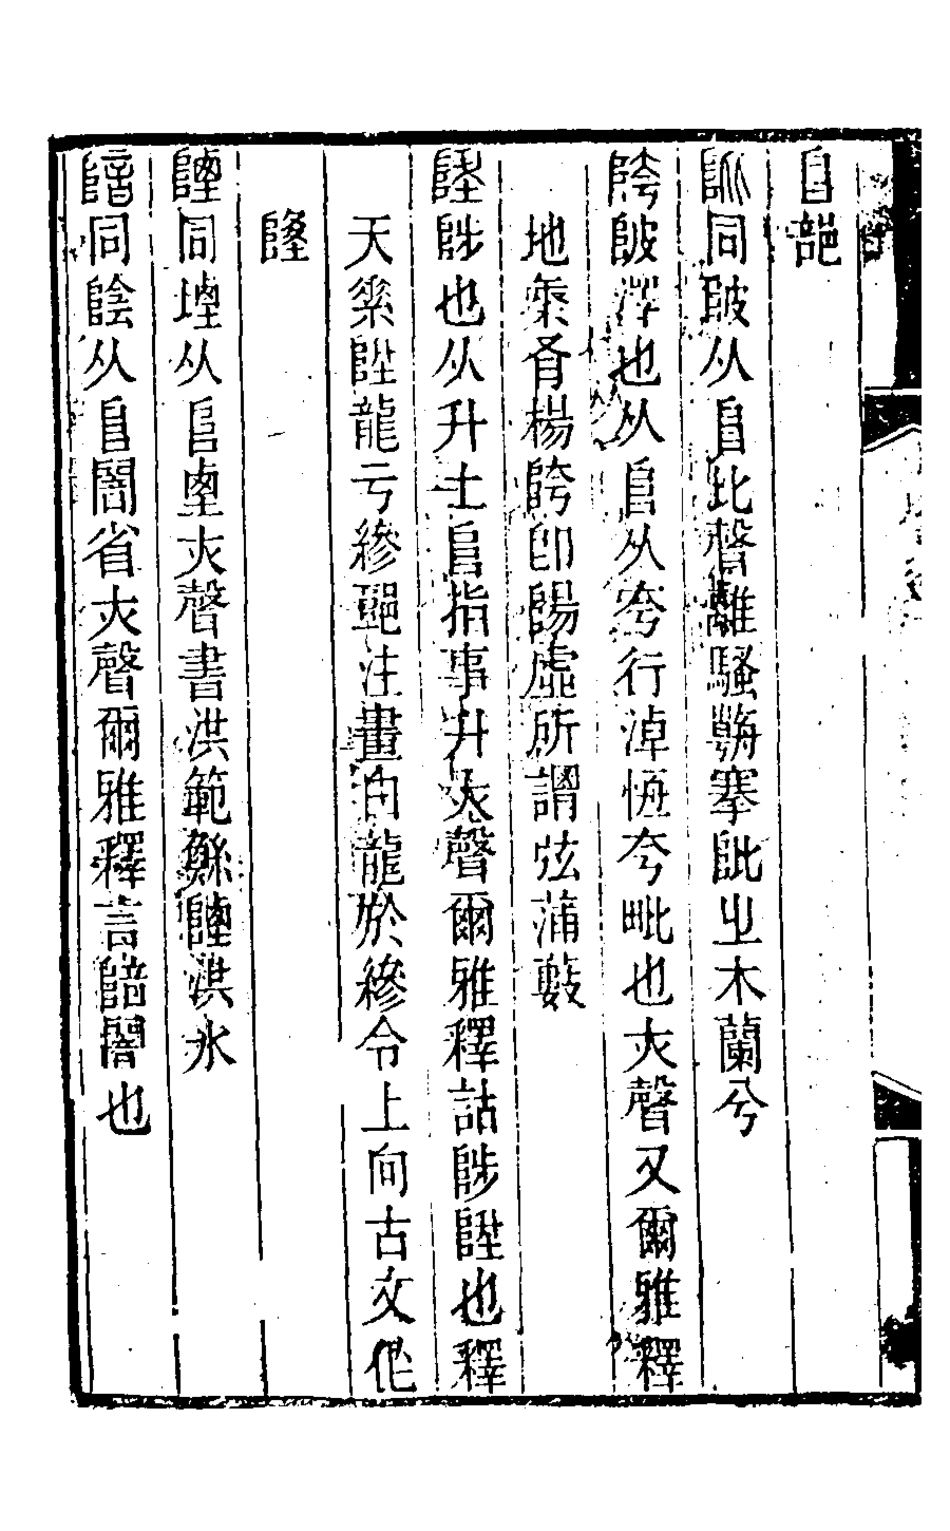 𨸏部
同陂从𨸏比聲離騷朝搴阰㞢木蘭兮
陓陂澤也从𨸏从夸行淖恆夸毗也亦聲又爾雅釋
地秦有楊陓卽陽虛所謂弦蒲藪
陞陟也从升土𨸏指事升亦聲爾雅釋詁陟陞也釋
天素陞龍亏縿郭注畫白龍於縿令上向古文作
同堙从𨸏垔亦聲書洪範鯀陻洪水
同陰从𨸏闇省亦聲爾雅釋言陪闇也